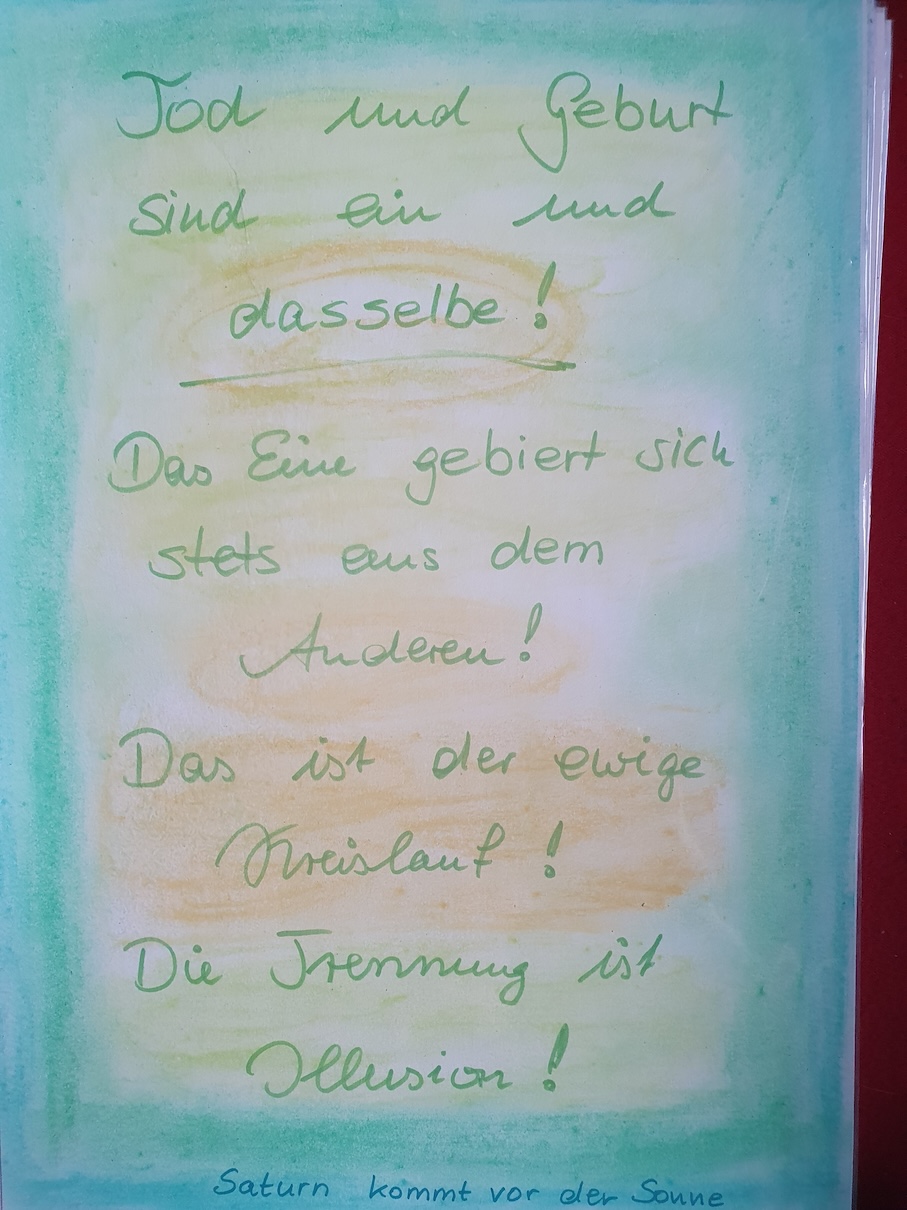 Tod und Geburt
sind ein und
dasselbe!
Das Eine gebiert sich
stets aus dem
Anderen!
Das ist der ewige
Kreislauf!
Die Trennung ist
Illusion!
Saturn kommt vor der Sonne